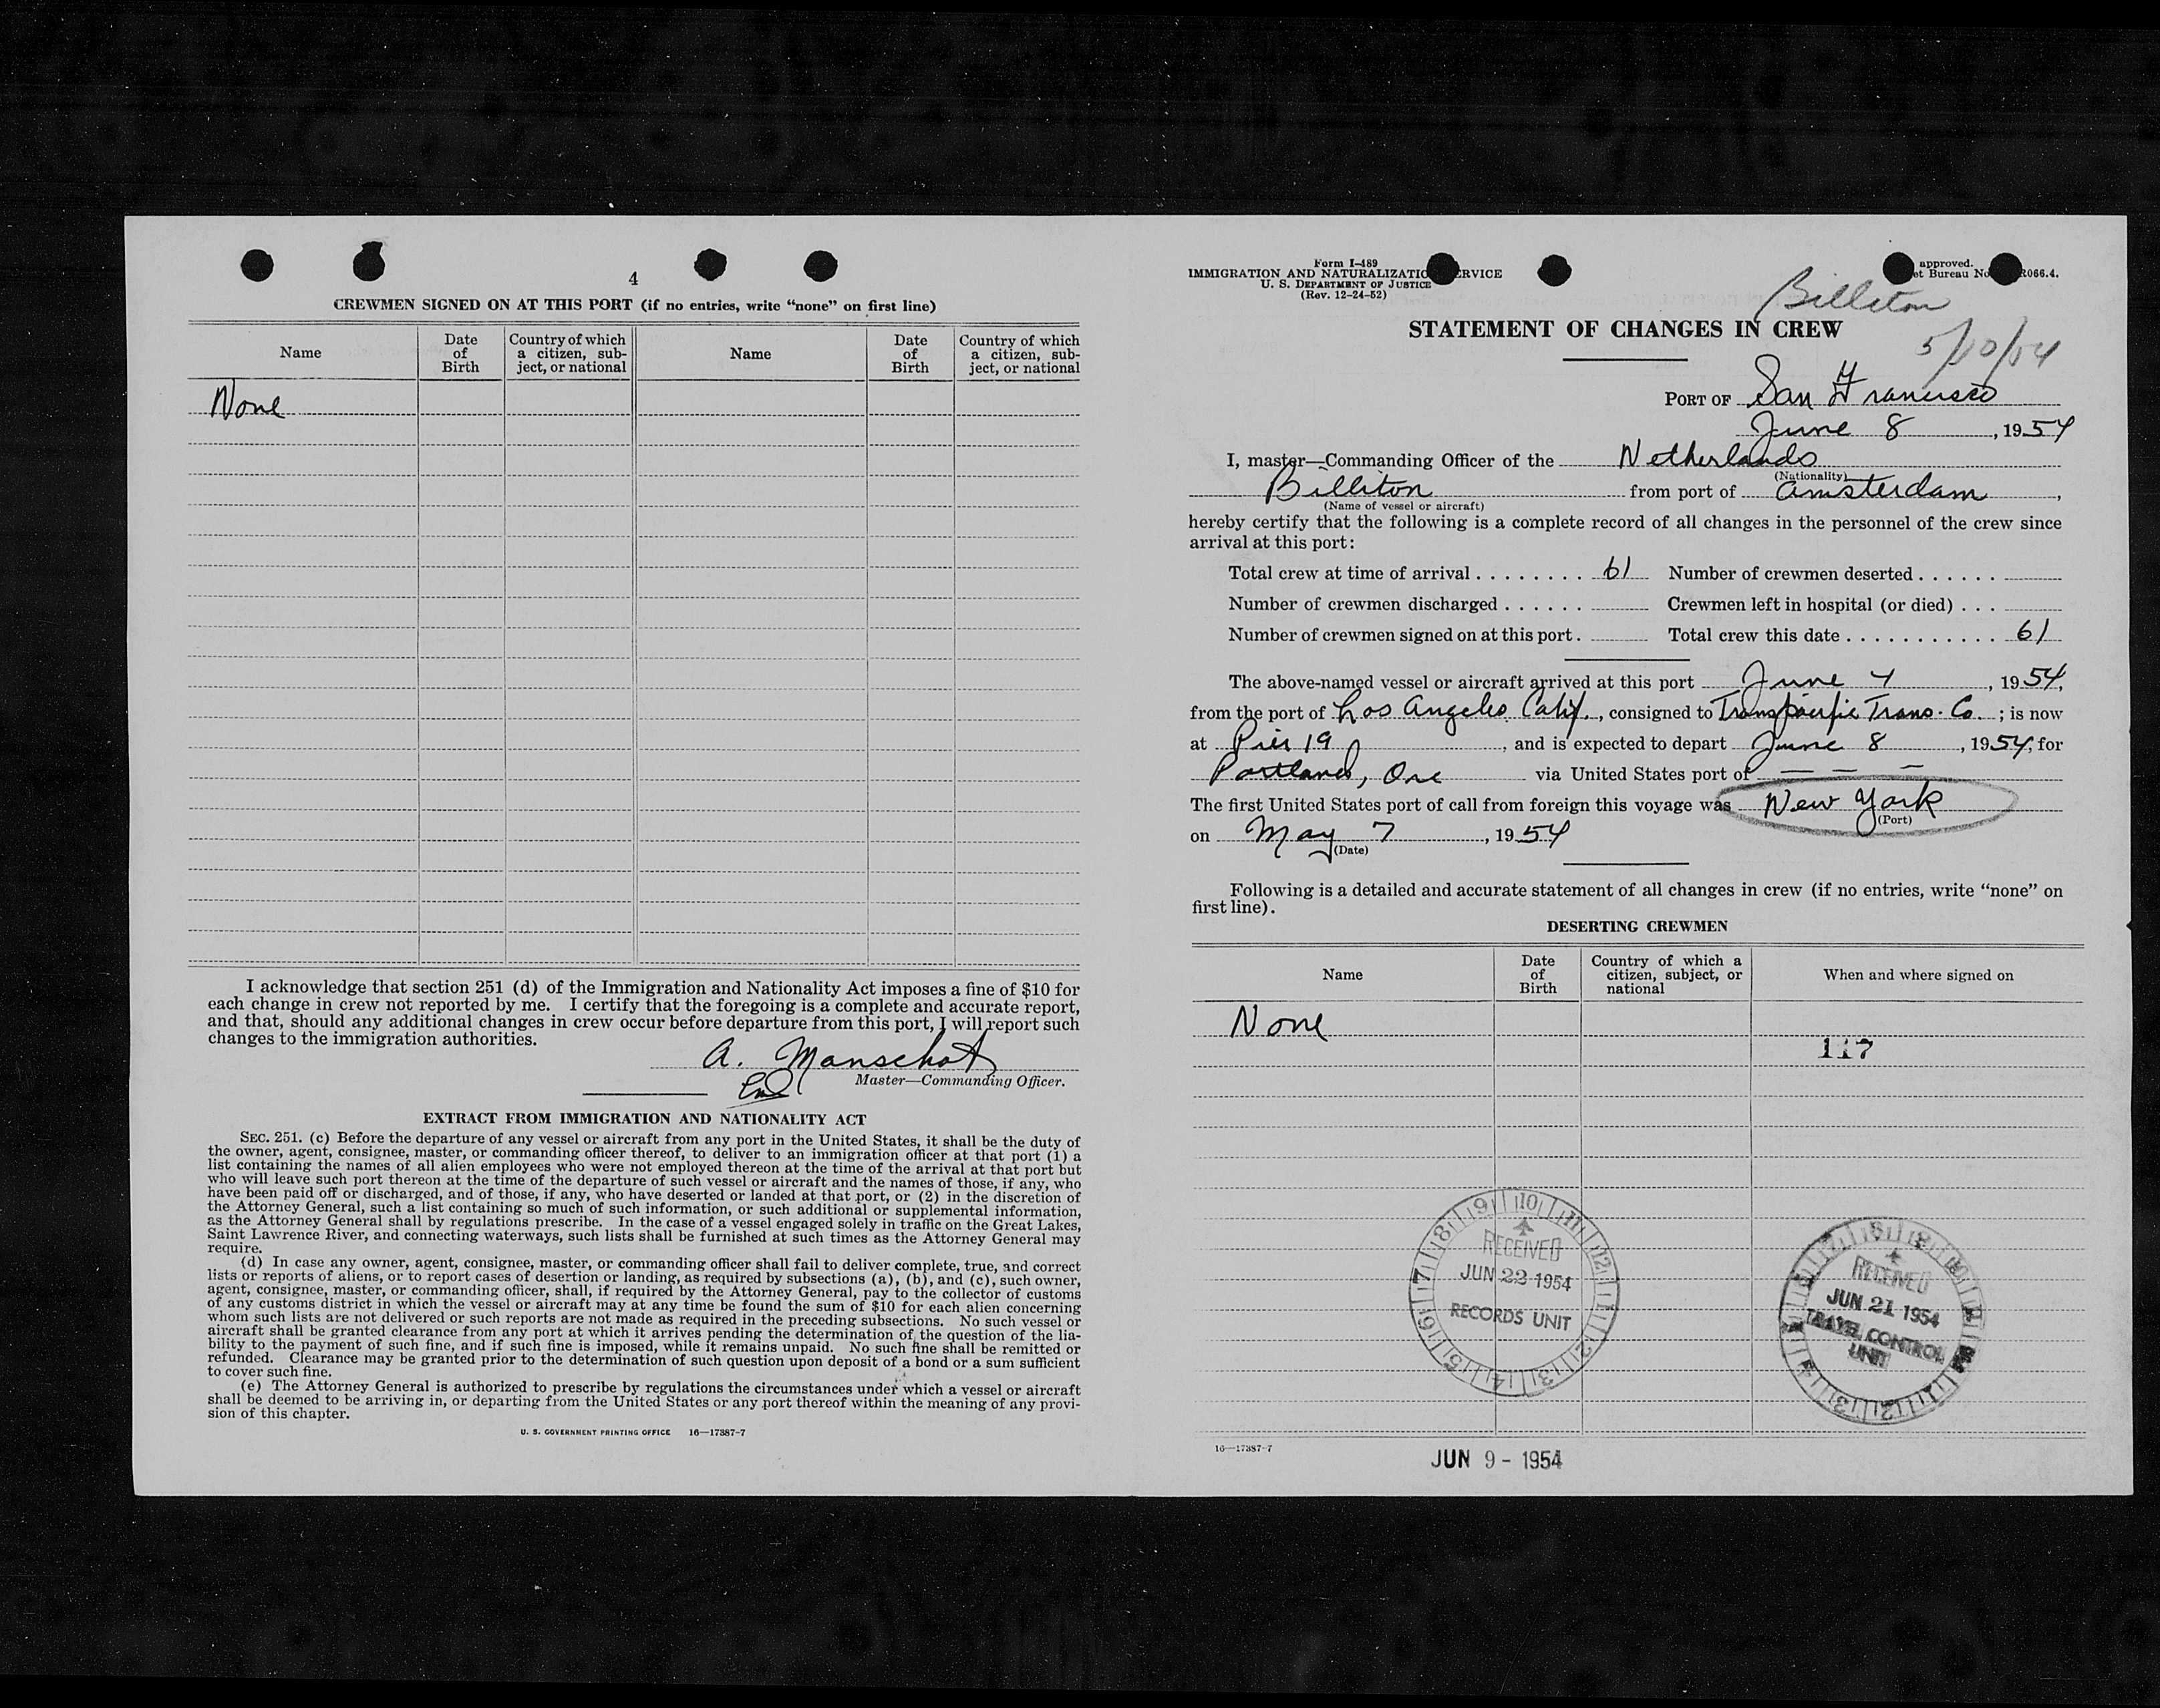 4
CREWMEN SIGNED ON AT THIS PORT (if no entries, write “none” on first line)
Name
Date of Birth
Country of which a citizen, sub-
ject, or national
Name
Date of Birth
Country of which a citizen, sub-
ject, or national
None
I acknowledge that section 251 (d) of the Immigration and Nationality Act imposes a fine of $10 for
each change in crew not reported by me. I certify that the foregoing is a complete and accurate report,
and that, should any additional changes in crew occur before departure from this port, I will report such
changes to the immigration authorities.
A. Manschot
Master—Commanding Officer.
EXTRACT FROM IMMIGRATION AND NATIONALITY ACT
SEC. 251. (c) Before the departure of any vessel or aircraft from any port in the United States, it shall be the duty of
the owner, agent, consignee, master, or commanding officer thereof, to deliver to an immigration officer at that port (1) a
list containing the names of all alien employees who were not employed thereon at the time of the arrival at that port but
who will leave such port thereon at the time of the departure of such vessel or aircraft and the names of those, if any, who
have been paid off or discharged, and of those, if any, who have deserted or landed at that port, or (2) in the discretion of
the Attorney General, such a list containing so much of such information, or such additional or supplemental information,
as the Attorney General shall by regulations prescribe. In the case of a vessel engaged solely in traffic on the Great Lakes,
Saint Lawrence River, and connecting waterways, such lists shall be furnished at such times as the Attorney General may
require.
(d) In case any owner, agent, consignee, master, or commanding officer shall fail to deliver complete, true, and correct
lists or reports of aliens, or to report cases of desertion or landing, as required by subsections (a), (b), and (c), such owner,
agent, consignee, master, or commanding officer, shall, if required by the Attorney General, pay to the collector of customs
of any customs district in which the vessel or aircraft may at any time be found the sum of $10 for each alien concerning
whom such lists are not delivered or such reports are not made as required in the preceding subsections. No such vessel or
aircraft shall be granted clearance from any port at which it arrives pending the determination of the question of the lia-
bility to the payment of such fine, and if such fine is imposed, while it remains unpaid. No such fine shall be remitted or
refunded. Clearance may be granted prior to the determination of such question upon deposit of a bond or a sum sufficient
to cover such fine.
(e) The Attorney General is authorized to prescribe by regulations the circumstances under which a vessel or aircraft
shall be deemed to be arriving in, or departing from the United States or any port thereof within the meaning of any provi-
sion of this chapter.
U. S. GOVERNMENT PRINTING OFFICE 16—17387-7
Form I-489
IMMIGRATION AND NATURALIZATIO ERVICE
U. S. DEPARTMENT OF JUSTICE
(Rev. 12-24-52)
approved.
et Bureau No R066.4.
Billiton
5/10/54
STATEMENT OF CHANGES IN CREW
PORT OF San Francisco
June 8, 1954
I, master—Commanding Officer of the Netherlands
(Nationality)
Billiton from port of Amsterdam,
(Name of vessel or aircraft)
hereby certify that the following is a complete record of all changes in the personnel of the crew since
arrival at this port:
Total crew at time of arrival ........ 61 Number of crewmen deserted ......
Number of crewmen discharged ...... Crewmen left in hospital (or died) ...
Number of crewmen signed on at this port. Total crew this date ........... 61
The above-named vessel or aircraft arrived at this port June 4, 1954,
from the port of Los Angeles Calif., consigned to Transpacific Trans. Co.; is now
at Pier 19, and is expected to depart June 8, 1954, for
Portland, Ore via United States port of — — —
The first United States port of call from foreign this voyage was New York
(Port)
on May 7, 1954
(Date)
Following is a detailed and accurate statement of all changes in crew (if no entries, write “none” on
first line).
DESERTING CREWMEN
Name
Date of Birth
Country of which a citizen, subject, or national
When and where signed on
None
117
RECEIVED
JUN 22 1954
RECORDS UNIT
RECEIVED
JUN 21 1954
TRAVEL CONTROL
UNIT
16—17387-7
JUN 9 - 1954